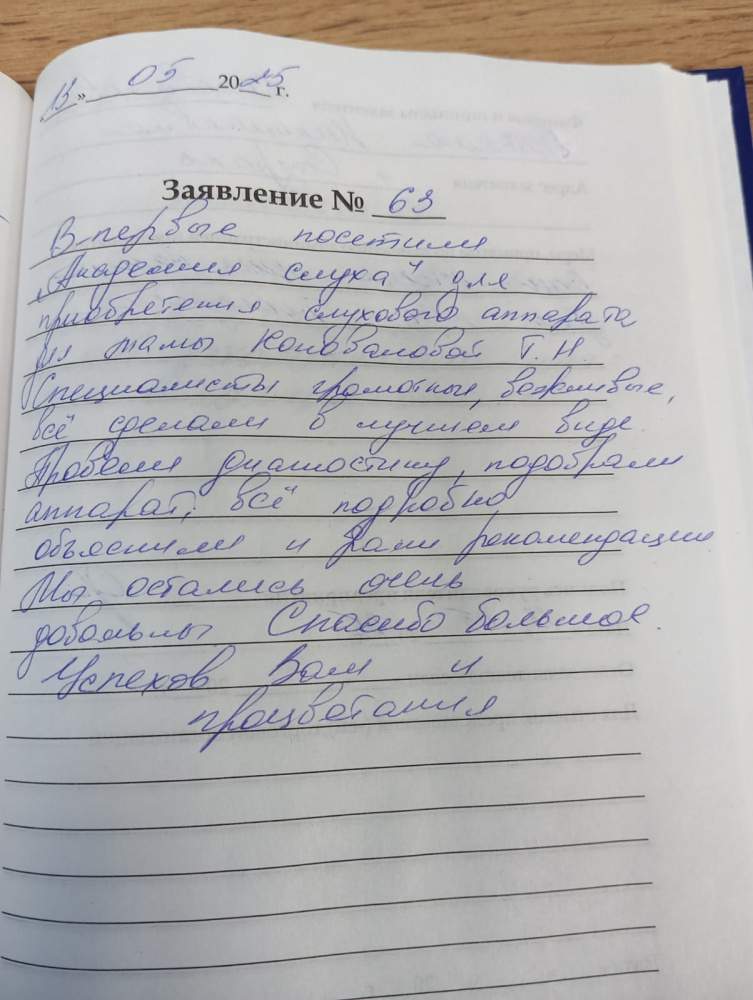 13 » 05 2025 г.
Заявление № 63
Впервые посетили
„Академия слуха" для
приобретения слухового аппарата
для мамы Коноваловой Т. Н.
Специалисты грамотные, вежливые,
всё сделали в лучшем виде.
Провели диагностику, подобрали
аппарат, всё подробно
объяснили и дали рекомендации
Мы остались очень
довольны Спасибо большое.
Успехов Вам и
процветания